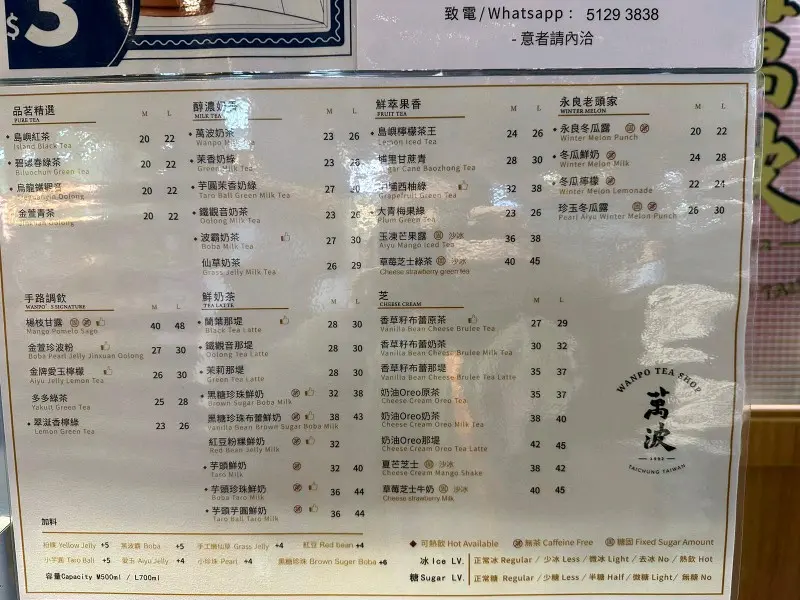 $3
致電/Whatsapp： 5129 3838
- 意者請內洽
品茗精選 M L
PURE TEA
島嶼紅茶 20 22
Island Black Tea
碧螺春綠茶 20 22
Biluochun Green Tea
烏龍鐵觀音 20 22
Tieguanyin Oolong
金萱青茶 20 22
醇濃奶香 M L
MILK TEA
萬波奶茶 23 26
Wanpo Milk Tea
茉香奶綠 23 26
Green Milk Tea
芋圓茉香奶綠 27
Taro Ball Green Milk Tea
鐵觀音奶茶 23 26
Oolong Milk Tea
波霸奶茶 27 30
Boba Milk Tea
仙草奶茶 26 29
Grass Jelly Milk Tea
鮮萃果香 M L
FRUIT TEA
島嶼檸檬茶王 24 26
Lemon Iced Tea
埔里甘蔗青 28 30
Sugar Cane Baozhong Tea
西柚綠 32 38
Grapefruit Green Tea
大青梅果綠 23 26
Plum Green Tea
玉凍芒果露 固 沙冰 36 38
Aiyu Mango Iced Tea
草莓芝士綠茶 固 沙冰 40 45
Cheese strawberry green tea
永良老頭家 M L
WINTER MELON
永良冬瓜露 固 20 22
Winter Melon Punch
冬瓜鮮奶 24 28
Winter Melon Milk
冬瓜檸檬 22 24
Winter Melon Lemonade
珍玉冬瓜露 固 26 30
Pearl Aiyu Winter Melon Punch
手路調飲 M L
WANPO'S SIGNATURE
楊枝甘露 固 40 48
Mango Pomelo Sago
金萱珍波粉 27 30
Boba Pearl Jelly Jinxuan Oolong
金牌愛玉檸檬 26 30
Aiyu Jelly Lemon Tea
多多綠茶 25 28
Yakult Green Tea
翠滋香檸綠 23 26
Lemon Green Tea
鮮奶茶 M L
TEA LATTE
蘭葉那堤 28 30
Black Tea Latte
鐵觀音那堤 28 30
Oolong Tea Latte
茉莉那堤 28 30
Green Tea Latte
黑糖珍珠鮮奶 32 38
Brown Sugar Boba Milk
黑糖珍珠布蕾鮮奶 38 43
Vanilla Bean Brown Sugar Boba Milk
紅豆粉粿鮮奶 32
Red Bean Jelly Milk
芋頭鮮奶 32 40
Taro Milk
芋頭珍珠鮮奶 36 44
Boba Taro Milk
芋頭芋圓鮮奶 36 44
Taro Ball Taro Milk
芝 M L
CHEESE CREAM
香草籽布蕾原茶 27 29
Vanilla Bean Cheese Brulee Tea
香草籽布蕾奶茶 30 32
Vanilla Bean Cheese Brulee Milk Tea
香草籽布蕾那堤 35 37
Vanilla Bean Cheese Brulee Tea Latte
奶油Oreo原茶 35 37
Cheese Cream Oreo Tea
奶油Oreo奶茶 38 40
Cheese Cream Oreo Milk Tea
奶油Oreo那堤 42 45
Cheese Cream Oreo Tea Latte
夏芒芝士 固 沙冰 38 42
Cheese Cream Mango Shake
草莓芝士牛奶 固 沙冰 40 45
Cheese strawberry Milk
WANPO TEA SHOP
萬波
1992
TAICHUNG TAIWAN
加料
粉粿 Yellow Jelly +5 萬波霸 Boba +5 手工嫩仙草 Grass Jelly +4 紅豆 Red bean +4
小芋圓 Taro Ball +5 愛玉 Aiyu Jelly +4 小珍珠 Pearl +4 黑糖珍珠 Brown Suger Boba +6
容量Capacity M500ml / L700ml
◆ 可熱飲 Hot Available 無茶 Caffeine Free 固 糖固 Fixed Sugar Amount
冰 Ice LV. 正常冰 Regular / 少冰 Less / 微冰 Light / 去冰 No / 熱飲 Hot
糖 Sugar LV. 正常糖 Regular / 少糖 Less / 半糖 Half / 微糖 Light / 無糖 No